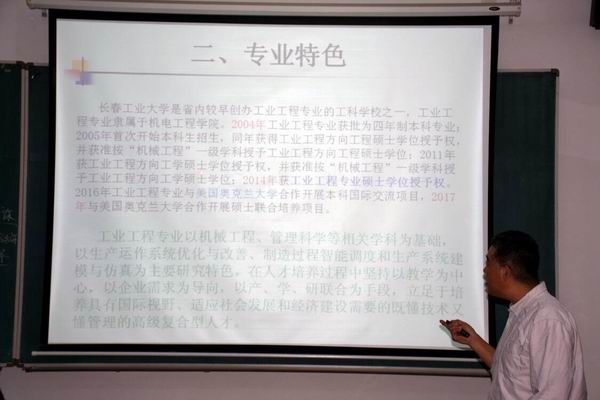 二、专业特色
长春工业大学是省内较早创办工业工程专业的工科学校之一，工业工
程专业隶属于机电工程学院。2004年工业工程专业获批为四年制本科专业；
2005年首次开始本科生招生，同年获得工业工程方向工程硕士学位授予权，
并获准按“机械工程”一级学科授予工业工程方向工程硕士学位；2011年
获工业工程方向工学硕士学位授予权，并获准按“机械工程”一级学科授
予工业工程方向工学硕士学位；2014年获工业工程专业硕士学位授予权。
2016年工业工程专业与美国奥克兰大学合作开展本科国际交流项目，2017
年与美国奥克兰大学合作开展硕士联合培养项目。
工业工程专业以机械工程、管理科学等相关学科为基础，
以生产运作系统优化与改善、制造过程智能调度和生产系统建
模与仿真为主要研究特色，在人才培养过程中坚持以教学为中
心，以企业需求为导向，以产、学、研联合为手段，立足于培
养具有国际视野、适应社会发展和经济建设需要的既懂技术又
懂管理的高级复合型人才。